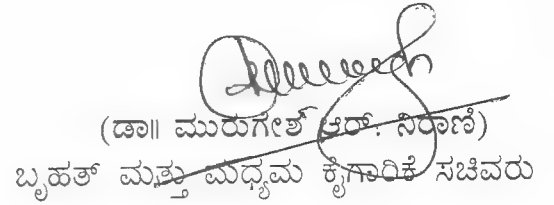 (ಡಾ|| ಮುರುಗೇಶ್ ಆರ್. ನಿರಾಣಿ)
ಬೃಹತ್ ಮತ್ತು ಮಧ್ಯಮ ಕೈಗಾರಿಕೆ ಸಚಿವರು